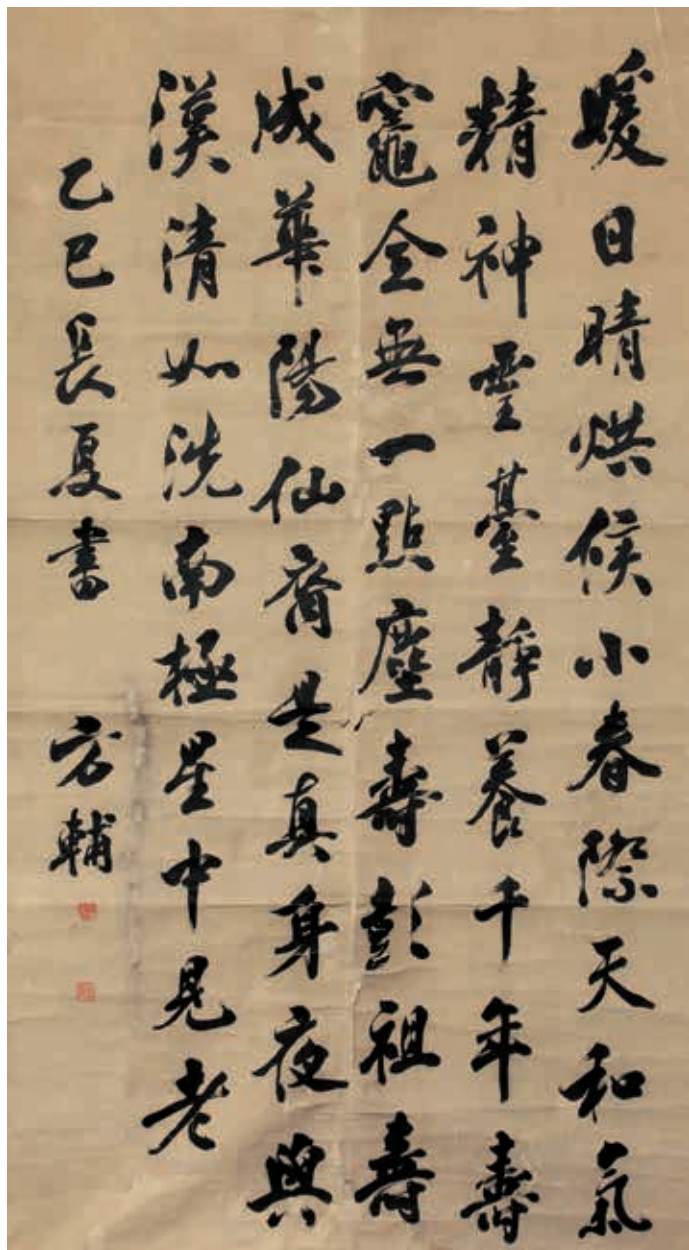 暖日晴烘候小春際天和氣
精神靈臺靜養千年壽
竈全無一點塵壽彭祖壽
成華陽仙裔是真身夜與
漢清如洗南極星中見老
乙巳長夏書 宏輔